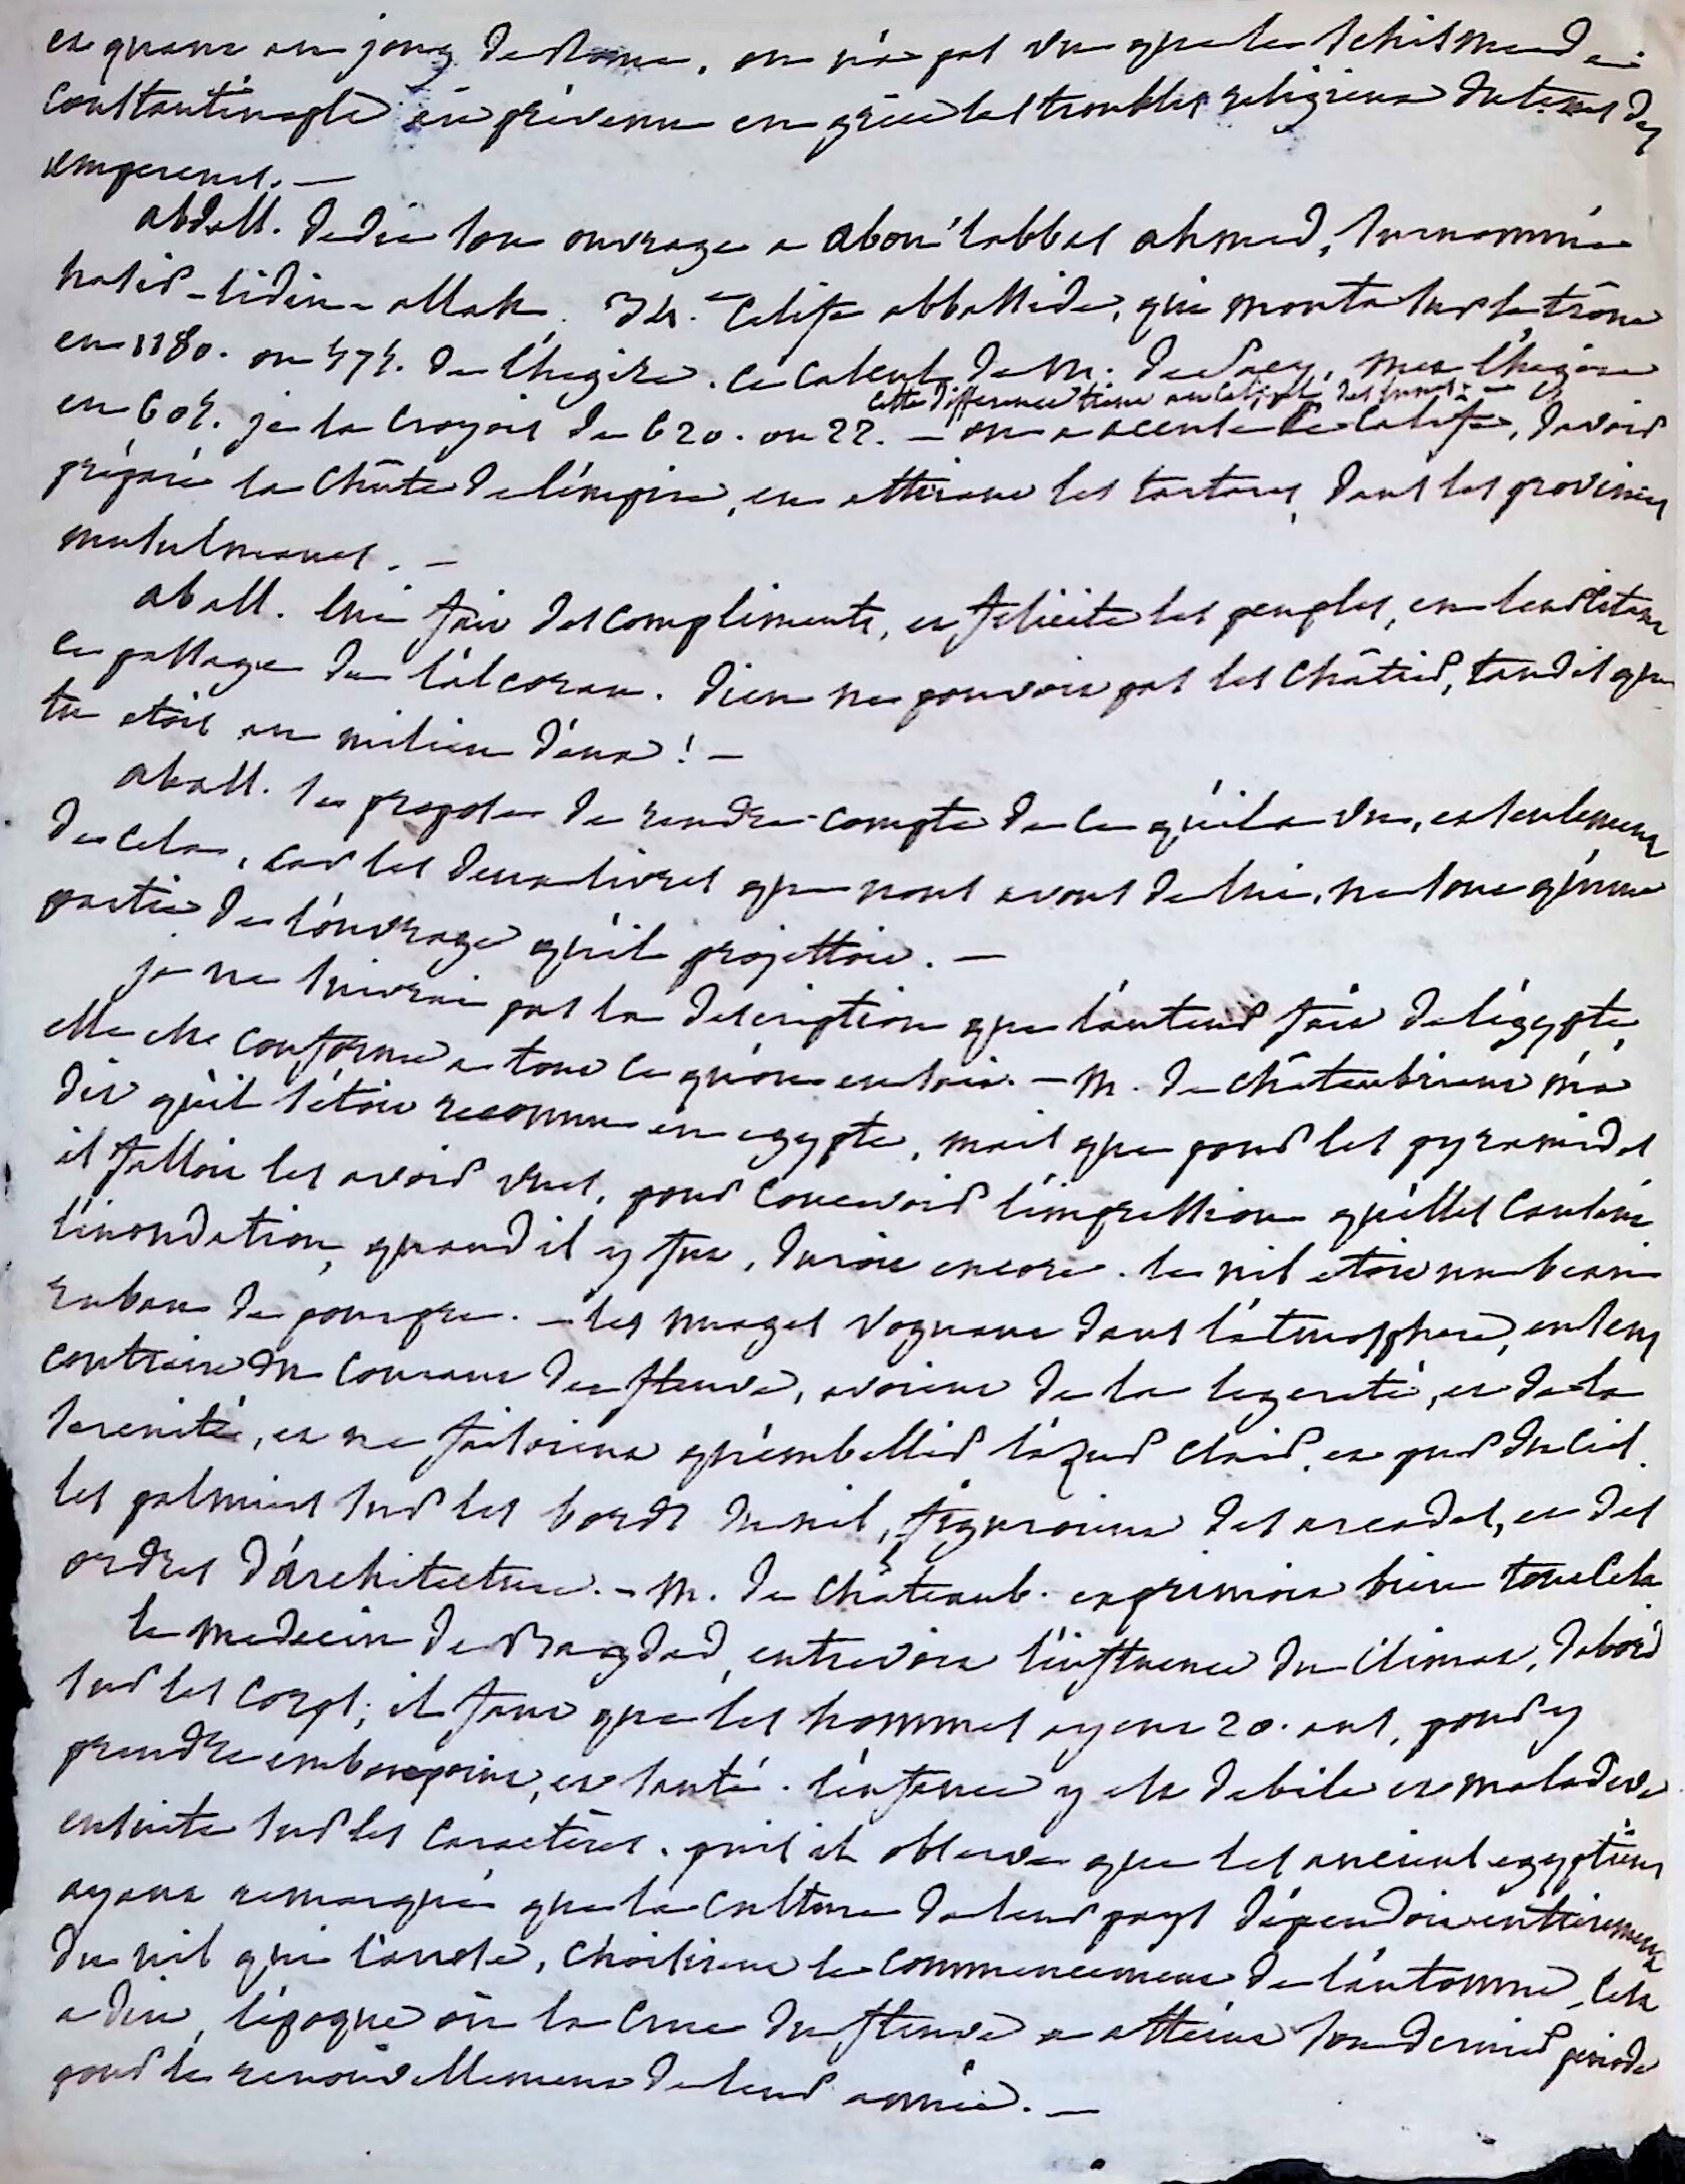 et quant au joug de Rome, on n'a pas vu que le schisme de
Constantinople ait prévenu en grèce les troubles religieux du tems des
empereurs. —
abdall. dédie son ouvrage a abou'labbas ahmed, surnommé
nasir-lidin-allah, 34.e Calife abbasside, qui monta sur le trône
en 1180. ou 575. de l'hegire. ce calcul de M. de Sacy, met l'hegire
cette difference tient au calcul des années
en 605. je la croyois de 620. ou 22. — on a accusé ce Calife, d'avoir
préparé la chûte de l'émpire, en attirant les tartares, dans les provinces
musulmanes. —
aball. lui fait des compliments, et felicite les peuples, en leur citant
ce passage de l'alcoran. dieu ne pouvoit pas les châtier, tandis que
tu etois au milieu d'eux! —
aball. se propose de rendre compte de ce qu'il a vu, et seulement
de cela, car les deux livres que nous avons de lui, ne sont qu'une
partie de l'ouvrage qu'il projettoit. —
je ne suivrai pas la description que l'auteur fait de l'égypte,
elle est conforme a tout ce qu'on en sait. — M. de châteaubriant m'a
dit qu'il s'étoit reconnu en egypte, mais que pour les pyramides
il falloit les avoir vues, pour concevoir l'impression qu'elles causent.
l'inondation, quand il y fut, duroit encore. le nil etoit un beau
ruban de pourpre. — les nuages voguant dans l'atmosphere, en sens
contraire du courant du fleuve, avoient de la legereté, et de la
serenité, et ne faisoient qu'embellir l'azur clair, et pur du ciel.
les palmiers sur les bords du nil, figuroient des arcades, et des
ordres d'architecture. — M. de Châteaub. exprimoit bien tout cela.
le medecin de Bagdad, entrevoit l'influence du climat, d'abord
sur les corps; il faut que les hommes ayent 20. ans, pour y
prendre embonpoint, et santé. l'enfance y est debile et maladive
ensuite sur les caractères. puis il observe que les anciens egyptiens
ayant remarqué que la culture de leur pays dépendoit entierement
du nil qui l'arrose, choisirent le commencement de l'automne, cela
a dire, l'époque où la crue du fleuve a atteint son dernier periode
pour le renouvellement de leur année. —